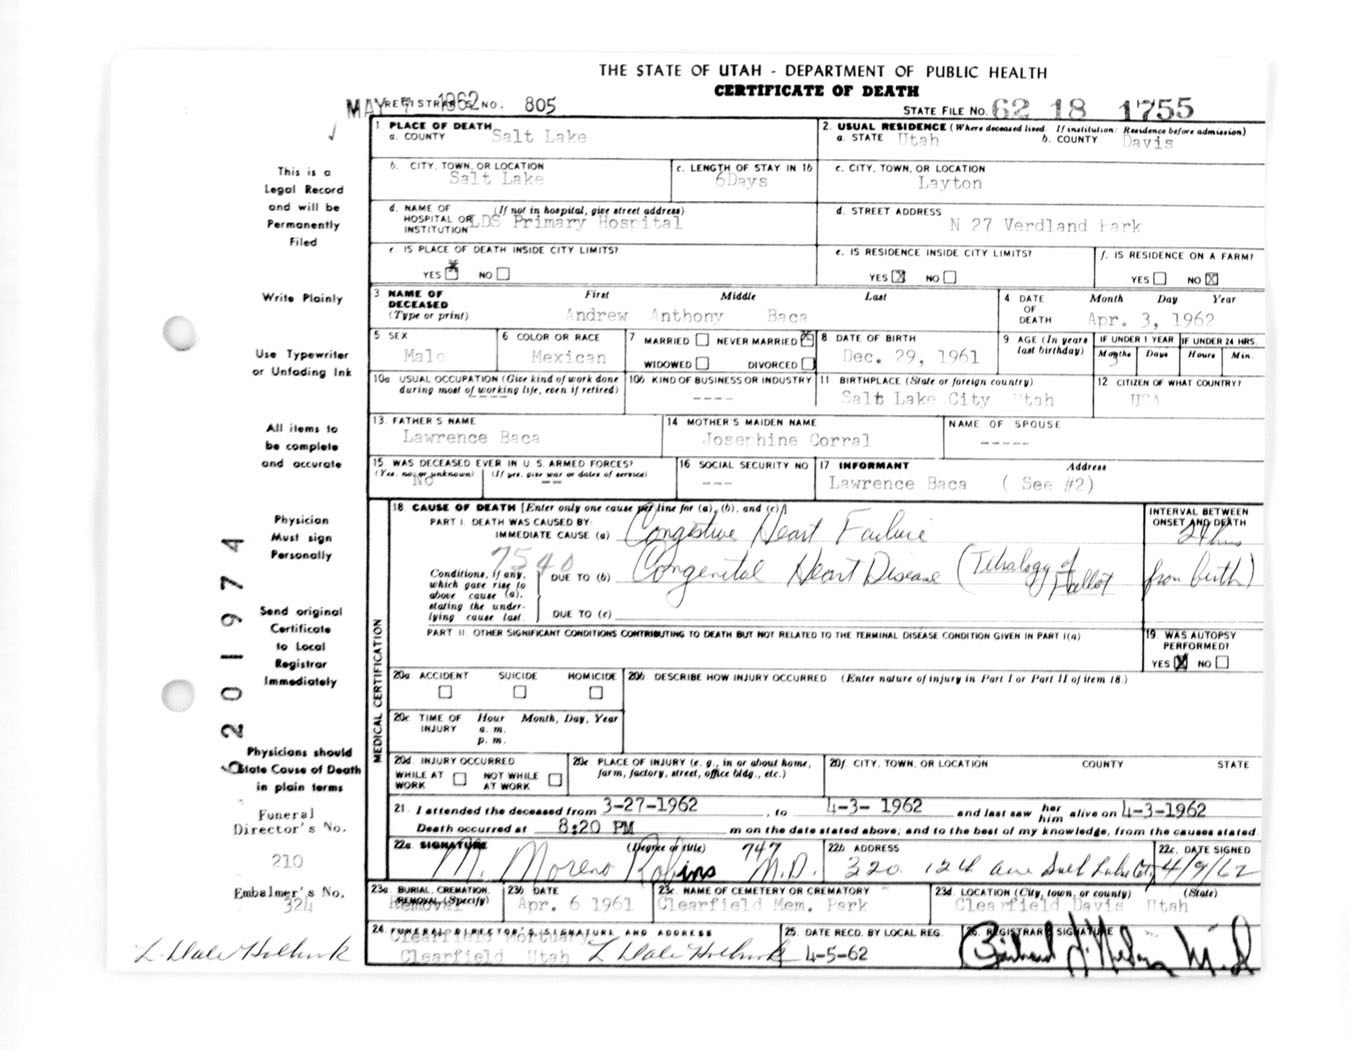 THE STATE OF UTAH - DEPARTMENT OF PUBLIC HEALTH
CERTIFICATE OF DEATH
MAY 7 1962 REGISTRAR'S NO. 805 STATE FILE NO. 62 18 1755
1 PLACE OF DEATH
a. COUNTY Salt Lake
2. USUAL RESIDENCE (Where deceased lived. If institution: Residence before admission)
a. STATE Utah b. COUNTY Davis
b. CITY, TOWN, OR LOCATION
Salt Lake
c. LENGTH OF STAY IN 1b
6Days
c. CITY, TOWN, OR LOCATION
Layton
d. NAME OF (If not in hospital, give street address)
HOSPITAL OR
INSTITUTION LDS Primary Hospital
d. STREET ADDRESS
N 27 Verdland Park
e. IS PLACE OF DEATH INSIDE CITY LIMITS?
YES X NO
e. IS RESIDENCE INSIDE CITY LIMITS?
YES X NO
f. IS RESIDENCE ON A FARM?
YES NO X
3 NAME OF DECEASED (Type or print) First Middle Last
Andrew Anthony Baca
4 DATE OF DEATH Month Day Year
Apr. 3, 1962
5 SEX
Male
6 COLOR OR RACE
Mexican
7 MARRIED NEVER MARRIED X
WIDOWED DIVORCED
8 DATE OF BIRTH
Dec. 29, 1961
9 AGE (In years last birthday) IF UNDER 1 YEAR IF UNDER 24 HRS.
Months Days Hours Min.
3
10a USUAL OCCUPATION (Give kind of work done
during most of working life, even if retired)
----
10b KIND OF BUSINESS OR INDUSTRY
----
11 BIRTHPLACE (State or foreign country)
Salt Lake City Utah
12 CITIZEN OF WHAT COUNTRY?
USA
13. FATHER'S NAME
Lawrence Baca
14 MOTHER'S MAIDEN NAME
Josephine Corral
NAME OF SPOUSE
-----
15 WAS DECEASED EVER IN U.S. ARMED FORCES?
(Yes, no, or unknown) (If yes, give war or dates of service)
No --
16 SOCIAL SECURITY NO
---
17 INFORMANT Address
Lawrence Baca ( See #2)
MEDICAL CERTIFICATION
18 CAUSE OF DEATH [Enter only one cause per line for (a), (b), and (c)]
PART I. DEATH WAS CAUSED BY:
IMMEDIATE CAUSE (a) Congestive Heart Failure
INTERVAL BETWEEN
ONSET AND DEATH
24 hrs
7540
Conditions, if any,
which gave rise to
above cause (a),
stating the under-
lying cause last.
DUE TO (b) Congenital Heart Disease (Tetralogy of Fallot from birth)
DUE TO (c)
PART II. OTHER SIGNIFICANT CONDITIONS CONTRIBUTING TO DEATH BUT NOT RELATED TO THE TERMINAL DISEASE CONDITION GIVEN IN PART I(a)
19. WAS AUTOPSY
PERFORMED?
YES X NO
20a ACCIDENT SUICIDE HOMICIDE
20b. DESCRIBE HOW INJURY OCCURRED (Enter nature of injury in Part I or Part II of item 18.)
20c TIME OF INJURY Hour Month, Day, Year
a. m.
p. m.
20d INJURY OCCURRED
WHILE AT WORK NOT WHILE AT WORK
20e. PLACE OF INJURY (e. g., in or about home,
farm, factory, street, office bldg., etc.)
20f. CITY, TOWN, OR LOCATION COUNTY STATE
21. I attended the deceased from 3-27-1962, to 4-3- 1962 and last saw her him alive on 4-3-1962
Death occurred at 8:20 PM m on the date stated above; and to the best of my knowledge, from the causes stated.
22a. SIGNATURE (Degree or title) 747
M. Moreno Robins M.D.
22b ADDRESS
320 12th Ave Salt Lake City
22c. DATE SIGNED
4/9/62
23a. BURIAL, CREMATION, REMOVAL (Specify)
Removal
23b DATE
Apr. 6 1961
23c. NAME OF CEMETERY OR CREMATORY
Clearfield Mem. Park
23d LOCATION (City, town, or county) (State)
Clearfield Davis Utah
24 FUNERAL DIRECTOR'S SIGNATURE AND ADDRESS
Clearfield Mortuary
Clearfield Utah
25. DATE RECD. BY LOCAL REG.
4-5-62
26. REGISTRAR'S SIGNATURE
M.D.
This is a
Legal Record
and will be
Permanently
Filed
Write Plainly
Use Typewriter
or Unfading Ink
All items to
be complete
and accurate
Physician
Must sign
Personally
Send original
Certificate
to Local
Registrar
Immediately
Physicians should
State Cause of Death
in plain terms
Funeral
Director's No.
210
Embalmer's No.
324
6201974